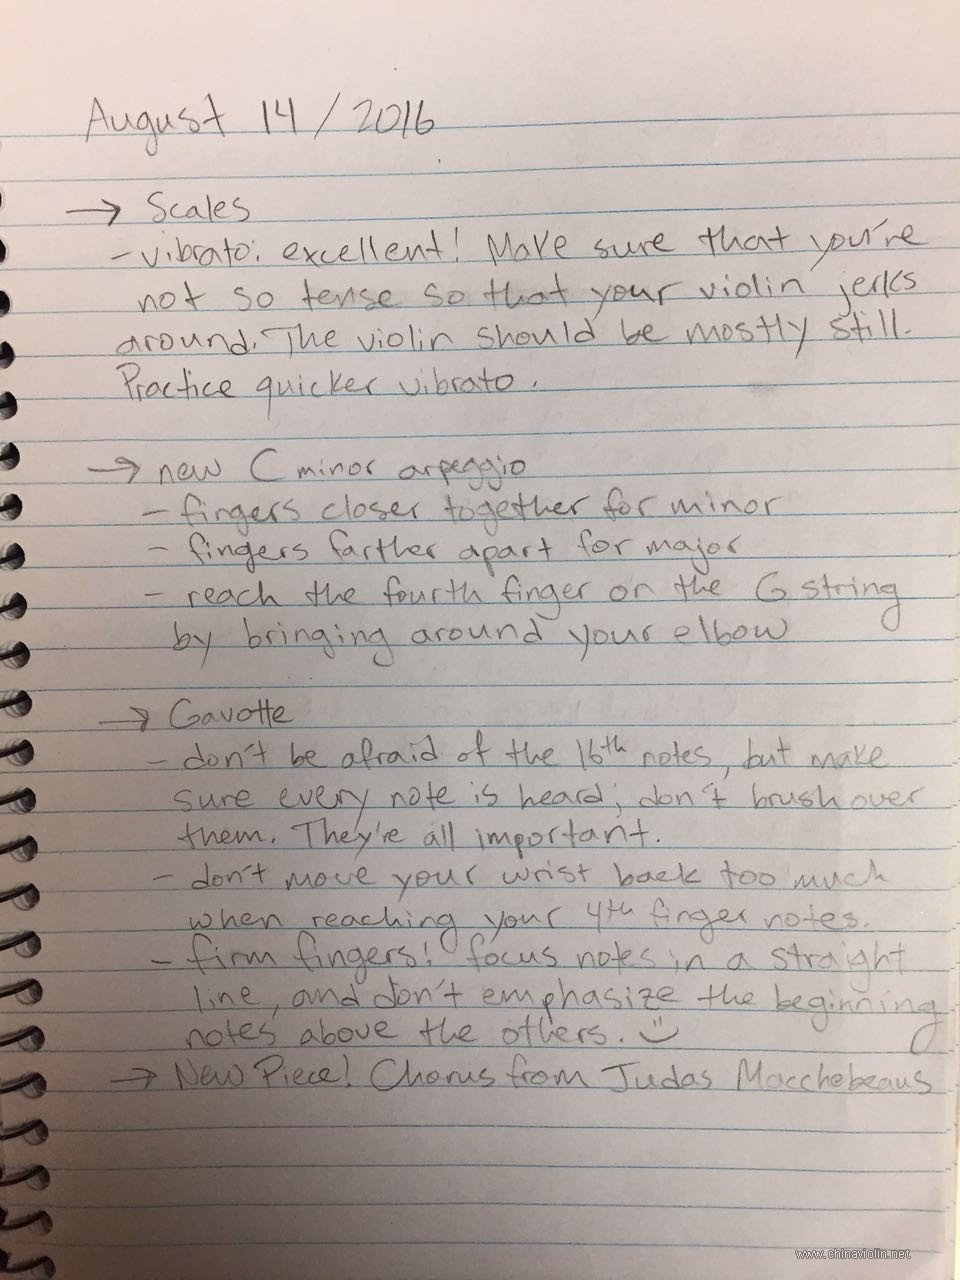 August 14 / 2016
→ Scales
- vibrato: excellent! Make sure that you're
not so tense so that your violin jerks
around. The violin should be mostly still.
Practice quicker vibrato.
→ new C minor arpeggio
- fingers closer together for minor
- fingers farther apart for major
- reach the fourth finger on the G string
by bringing around your elbow
→ Gavotte
- don't be afraid of the 16th notes, but make
sure every note is heard; don't brush over
them. They're all important.
- don't move your wrist back too much
when reaching your 4th finger notes.
- firm fingers! focus notes in a straight
line, and don't emphasize the beginning
notes above the others. :)
→ New Piece! Chorus from Judas Macchebeaus
www.chinaviolin.net